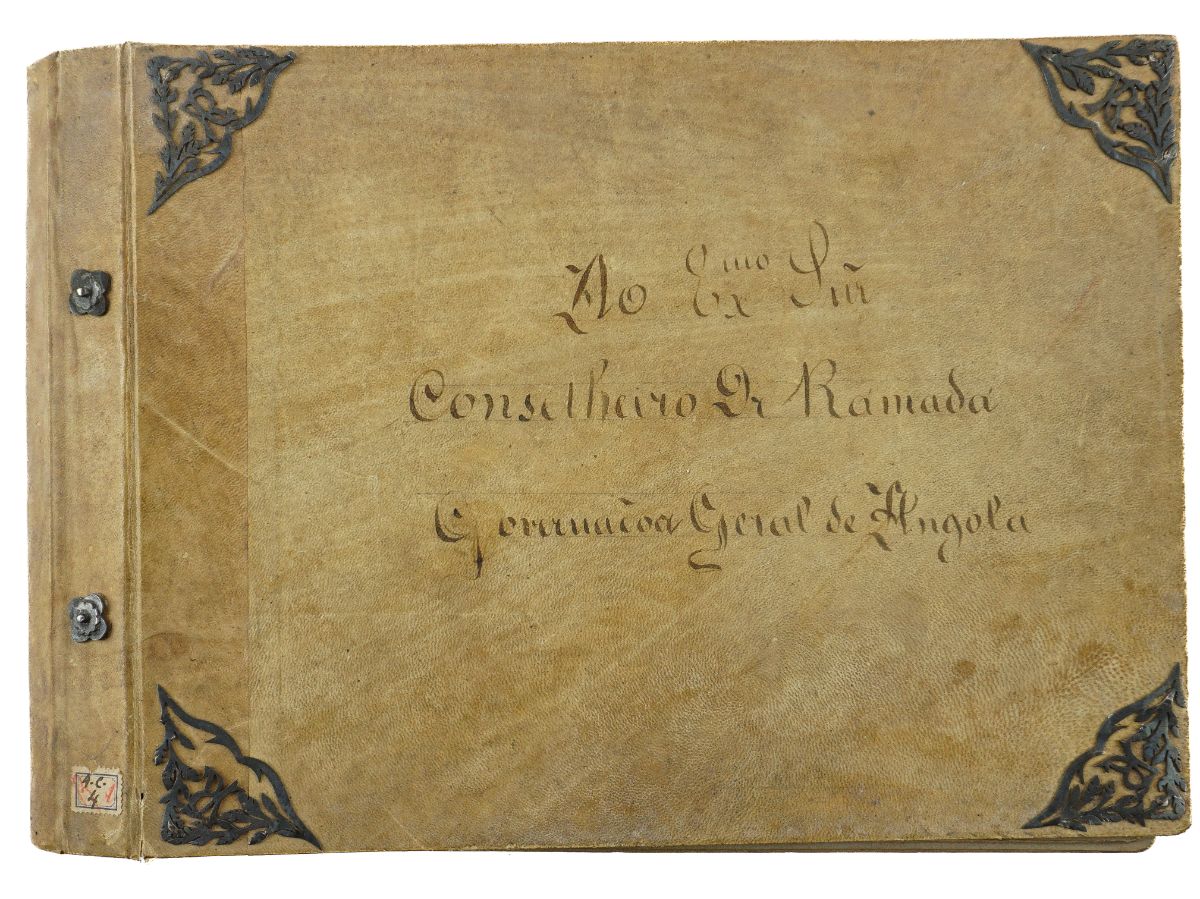 Ao Exmo Snr
Conselheiro Dr Ramada
Governador Geral de Angola
A.C.
4